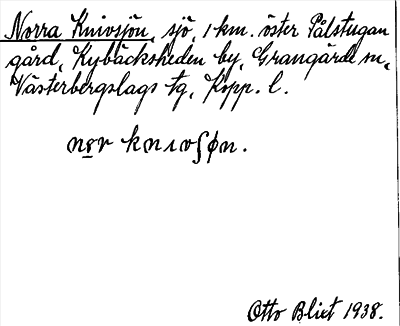 Norra Knivsjön, sjö, 1 km. öster Pålstugan
gård, Kybäcksheden by, Grangärde sn,
Västerbergslags tg, Kopp. l.
nɵ̱r knıvʃøn.
Otto Blixt 1938.